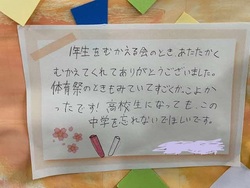 1年生をむかえる会のとき、あたたかく
むかえてくれてありがとうございました。
体育祭のときもみていてすごくかっこよか
ったです！高校生になっても、この
中学を忘れないでほしいです。